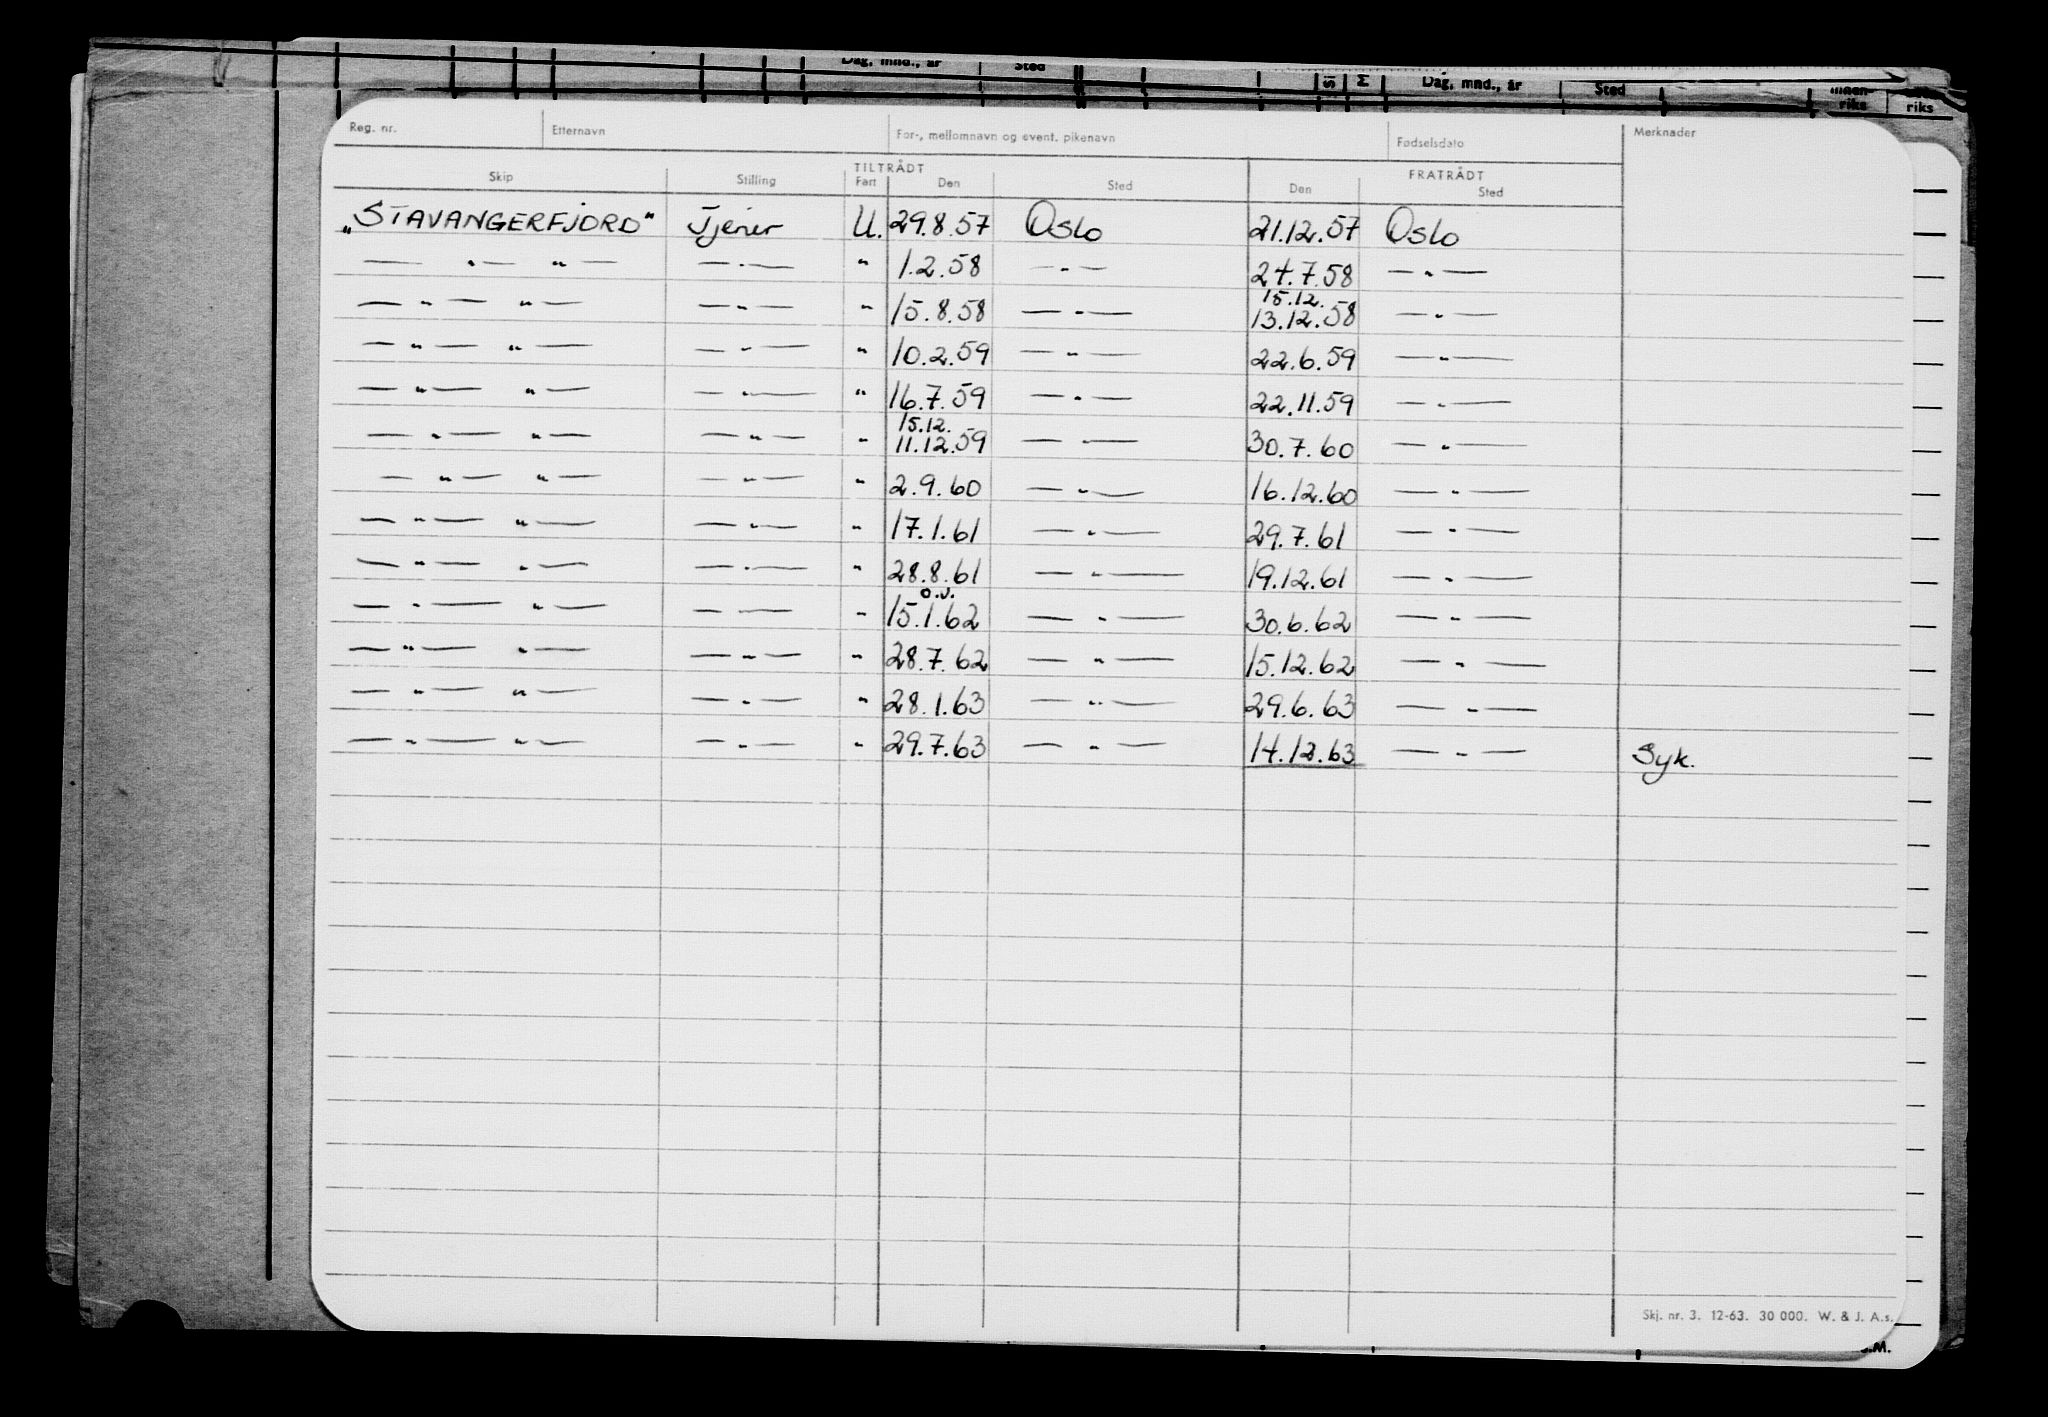 Dag, mnd., år Sted Dag, mnd., år Sted riks riks
Reg. nr. Etternavn For-, mellomnavn og event. pikenavn Fødselsdato Merknader
TILTRÅDT FRATRÅDT
Skip Stilling Fart Den Sted Den Sted
„STAVANGERFJORD" Tjener U. 29.8.57 Oslo 21.12.57 Oslo
— " — " — — " — " 1.2.58 — " — 24.7.58 — " —
15.12.
— " — " — — " — " 15.8.58 — " — 13.12.58 — " —
— " — " — — " — " 10.2.59 — " — 22.6.59 — " —
— " — " — — " — " 16.7.59 — " — 22.11.59 — " —
15.12.
— " — " — — " — " 11.12.59 — " — 30.7.60 — " —
— " — " — — " — " 2.9.60 — " — 16.12.60 — " —
— " — " — — " — " 17.1.61 — " — 29.7.61 — " —
— " — " — — " — " 28.8.61 — " — 19.12.61 — " —
o.v.
— " — " — — " — " 15.1.62 — " — 30.6.62 — " —
— " — " — — " — " 28.7.62 — " — 15.12.62 — " —
— " — " — — " — " 28.1.63 — " — 29.6.63 — " —
— " — " — — " — " 29.7.63 — " — 14.12.63 — " — Syk.
Skj. nr. 3. 12-63. 30 000. W. & J. A.s.